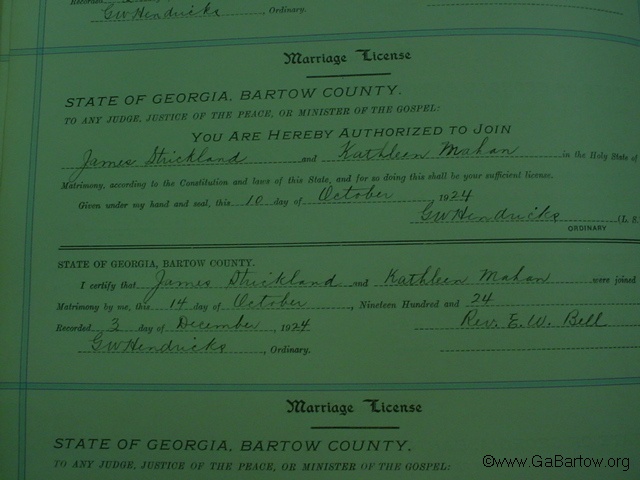 Recorded
GW Hendricks, Ordinary.
Marriage License
STATE OF GEORGIA, BARTOW COUNTY.
TO ANY JUDGE, JUSTICE OF THE PEACE, OR MINISTER OF THE GOSPEL:
YOU ARE HEREBY AUTHORIZED TO JOIN
James Strickland and Kathleen Mahan in the Holy State of
Matrimony, according to the Constitution and laws of this State, and for so doing this shall be your sufficient license.
Given under my hand and seal, this 10 day of October, 1924
GW Hendricks (L. S.
ORDINARY
STATE OF GEORGIA, BARTOW COUNTY.
I certify that James Strickland and Kathleen Mahan were joined
Matrimony by me, this 14 day of October, Nineteen Hundred and 24
Recorded 3 day of December, 1924 Rev. E. W. Bell
GW Hendricks, Ordinary.
Marriage License
STATE OF GEORGIA, BARTOW COUNTY.
TO ANY JUDGE, JUSTICE OF THE PEACE, OR MINISTER OF THE GOSPEL:
©www.GaBartow.org